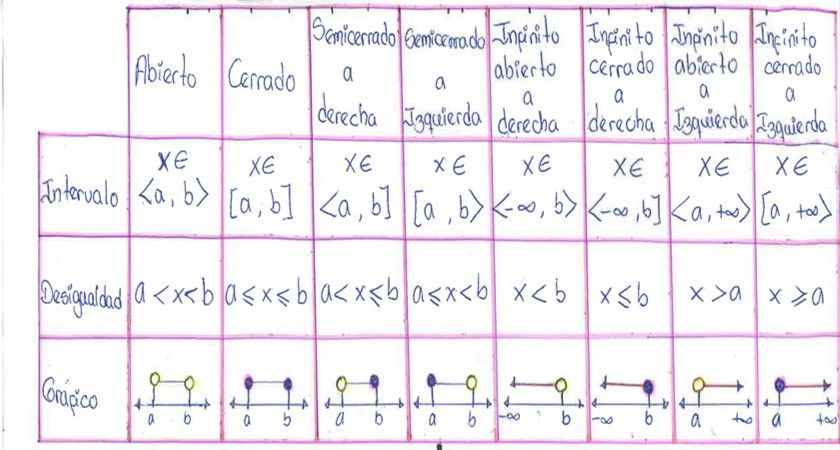 Abierto
Cerrado
Semicerrado
a
derecha
Semicerrado
a
Izquierda
Infinito
abierto
a
derecha
Infinito
cerrado
a
derecha
Infinito
abierto
a
Izquierda
Infinito
cerrado
a
Izquierda
Intervalo
x∈
<a, b>
x∈
[a, b]
x∈
<a, b]
x∈
[a, b>
x∈
<-∞, b>
x∈
<-∞, b]
x∈
<a, +∞>
x∈
[a, +∞>
Desigualdad
a < x < b
a ≤ x ≤ b
a < x ≤ b
a ≤ x < b
x < b
x ≤ b
x > a
x ≥ a
Gráfico
a b
a b
a b
a b
-∞ b
-∞ b
a +∞
a +∞